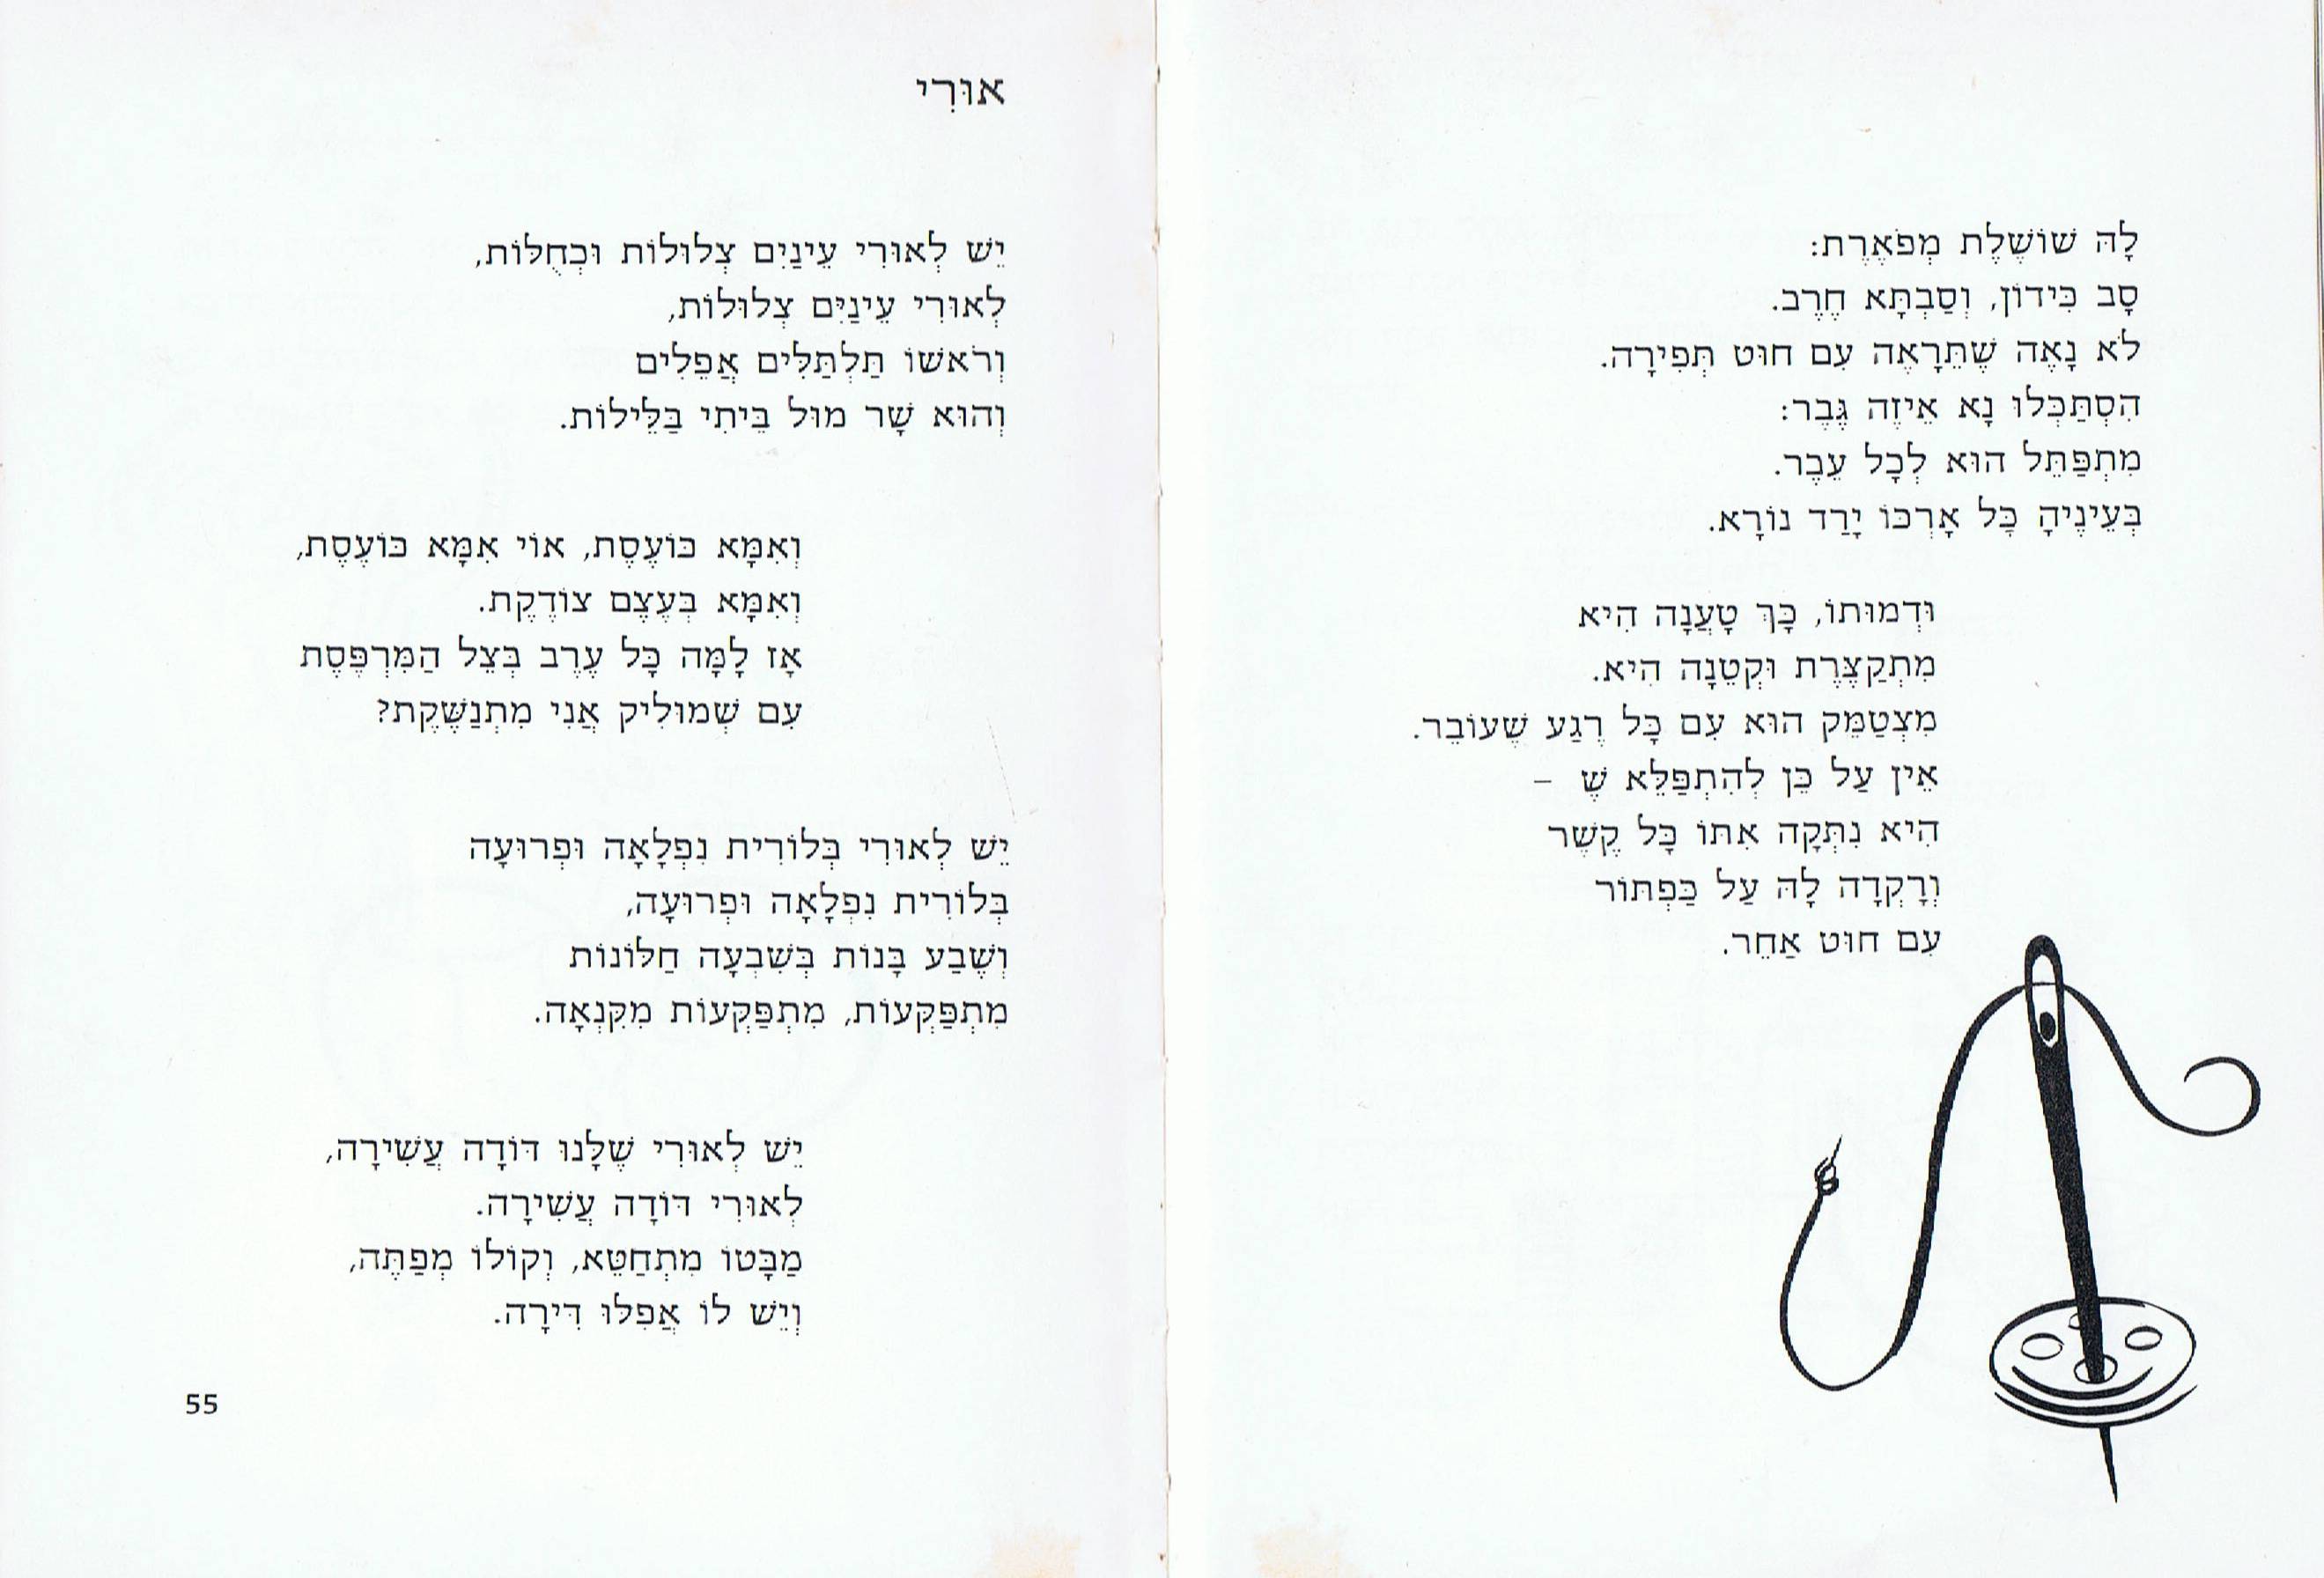 לָהּ שׁוֹשֶׁלֶת מְפֹאֶרֶת:
סָב כִּידוֹן, וְסַבְתָּא חֶרֶב.
לֹא נָאֶה שֶׁתֵּרָאֶה עִם חוּט תְּפִירָה.
הִסְתַּכְּלוּ נָא אֵיזֶה גֶּבֶר:
מִתְפַּתֵּל הוּא לְכָל עֵבֶר.
בְּעֵינֶיהָ כָּל אָרְכּוֹ יָרַד נוֹרָא.
וּדְמוּתוֹ, כָּךְ טָעֲנָה הִיא
מִתְקַצֶּרֶת וּקְטֵנָה הִיא.
מִצְטַמֵּק הוּא עִם כָּל רֶגַע שֶׁעוֹבֵר.
אֵין עַל כֵּן לְהִתְפַּלֵּא שֶׁ –
הִיא נִתְּקָה אִתּוֹ כָּל קֶשֶׁר
וְרָקְדָה לָהּ עַל כַּפְתּוֹר
עִם חוּט אַחֵר.
אוּרִי
יֵשׁ לְאוּרִי עֵינַיִם צְלוּלוֹת וּכְחֻלּוֹת,
לְאוּרִי עֵינַיִּם צְלוּלוֹת,
וְרֹאשׁוֹ תַּלְתַּלִּים אֲפֵלִים
וְהוּא שָׁר מוּל בֵּיתִי בַּלֵּילוֹת.
וְאִמָּא כּוֹעֶסֶת, אוֹי אִמָּא כּוֹעֶסֶת,
וְאִמָּא בְּעֶצֶם צוֹדֶקֶת.
אָז לָמָּה כָּל עֶרֶב בְּצֵל הַמִּרְפֶּסֶת
עִם שְׁמוּלִיק אֲנִי מִתְנַשֶּׁקֶת?
יֵשׁ לְאוּרִי בְּלוֹרִית נִפְלָאָה וּפְרוּעָה
בְּלוֹרִית נִפְלָאָה וּפְרוּעָה,
וְשֶׁבַע בָּנוֹת בְּשִׁבְעָה חַלּוֹנוֹת
מִתְפַּקְּעוֹת, מִתְפַּקְּעוֹת מִקִּנְאָה.
יֵשׁ לְאוּרִי שֶׁלָּנוּ דּוֹדָה עֲשִׁירָה,
לְאוּרִי דּוֹדָה עֲשִׁירָה.
מַבָּטוֹ מִתְחַטֵּא, וְקוֹלוֹ מְפַתֶּה,
וְיֵשׁ לוֹ אֲפִלּוּ דִּירָה.
55